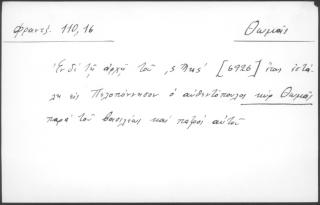 Φραντζ. 110, 16 Θωμᾶς
Ἐν δὲ τῇ ἀρχῇ τοῦ ,ς [6926] ἔτος ἐστά-
λη εἰς Πελοπόννησον ὁ αὐθεντόπουλος κὺρ Θωμᾶς
παρὰ τοῦ βασιλέως καὶ πατρὸς αὐτοῦ